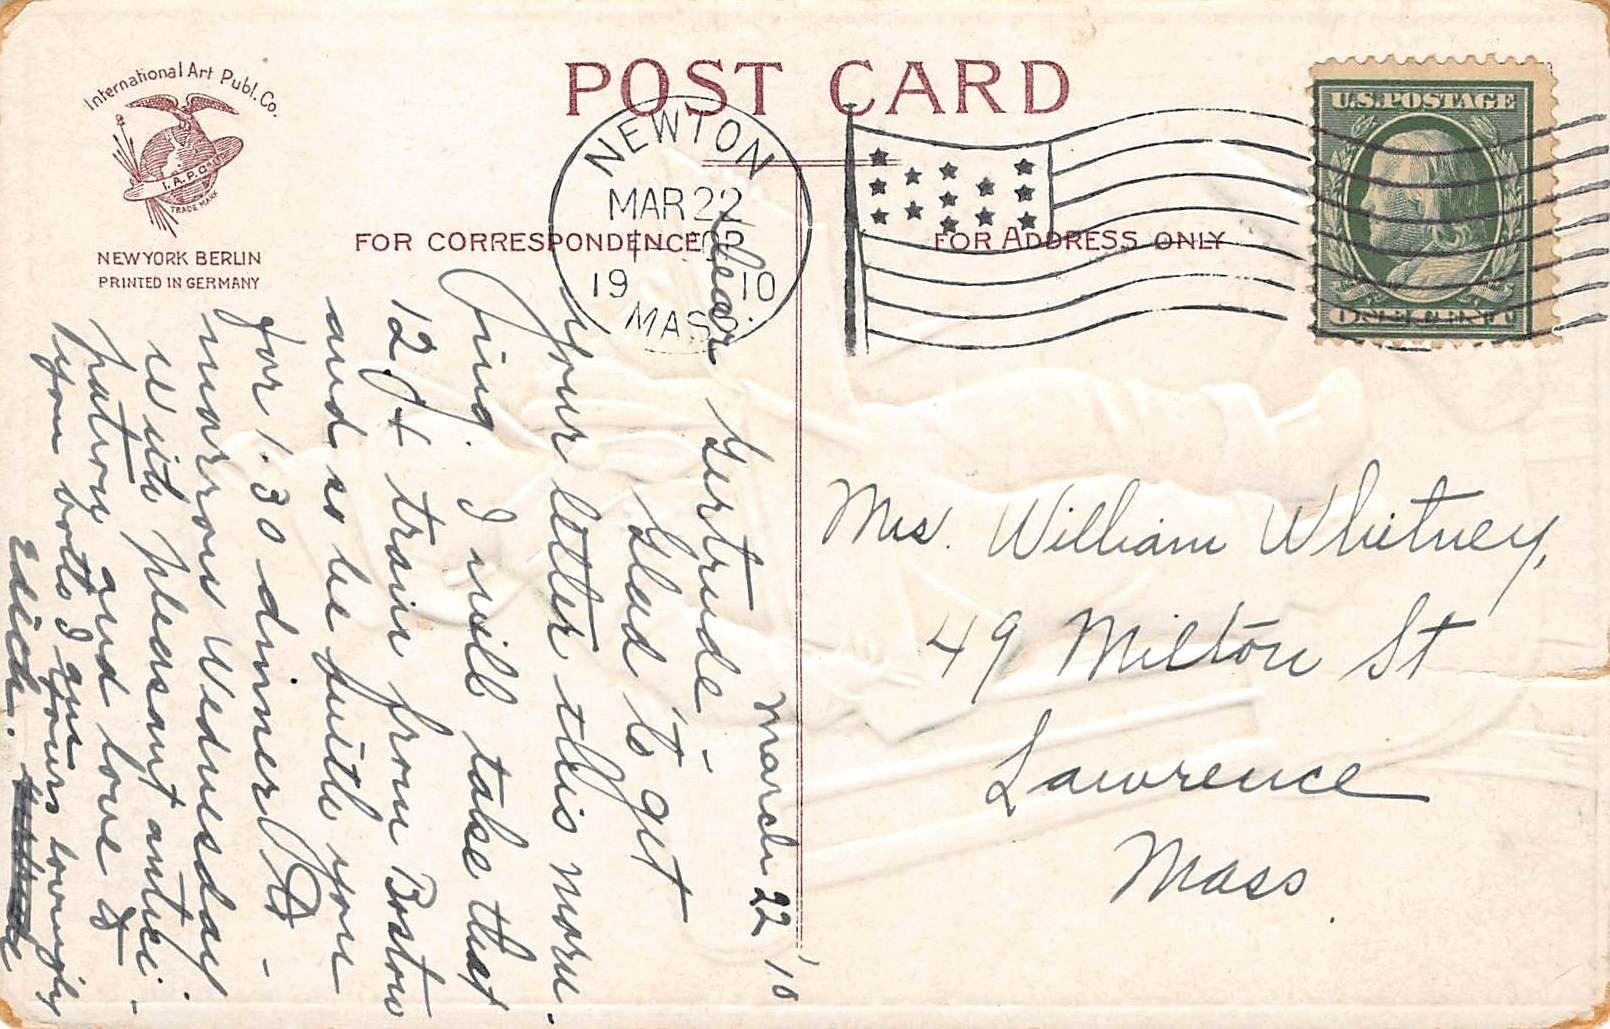 International Art Publ. Co.
I.A.P.Co.
TRADE MARK
NEW YORK BERLIN
PRINTED IN GERMANY
POST CARD
FOR CORRESPONDENCE
FOR ADDRESS ONLY
NEWTON
MAR 22
19 10
MASS.
U.S. POSTAGE
March 22 '10
Dear Gertrude –
Glad to get
your letter this morn-
ing. I will take that
12 04 train from Boston
and so be with you
for 1.30 dinner to-
morrow Wednesday
With pleasant antici-
pation and love to
you both I am
yours lovingly
Mrs. William Whitney,
49 Milton St
Lawrence
Mass.